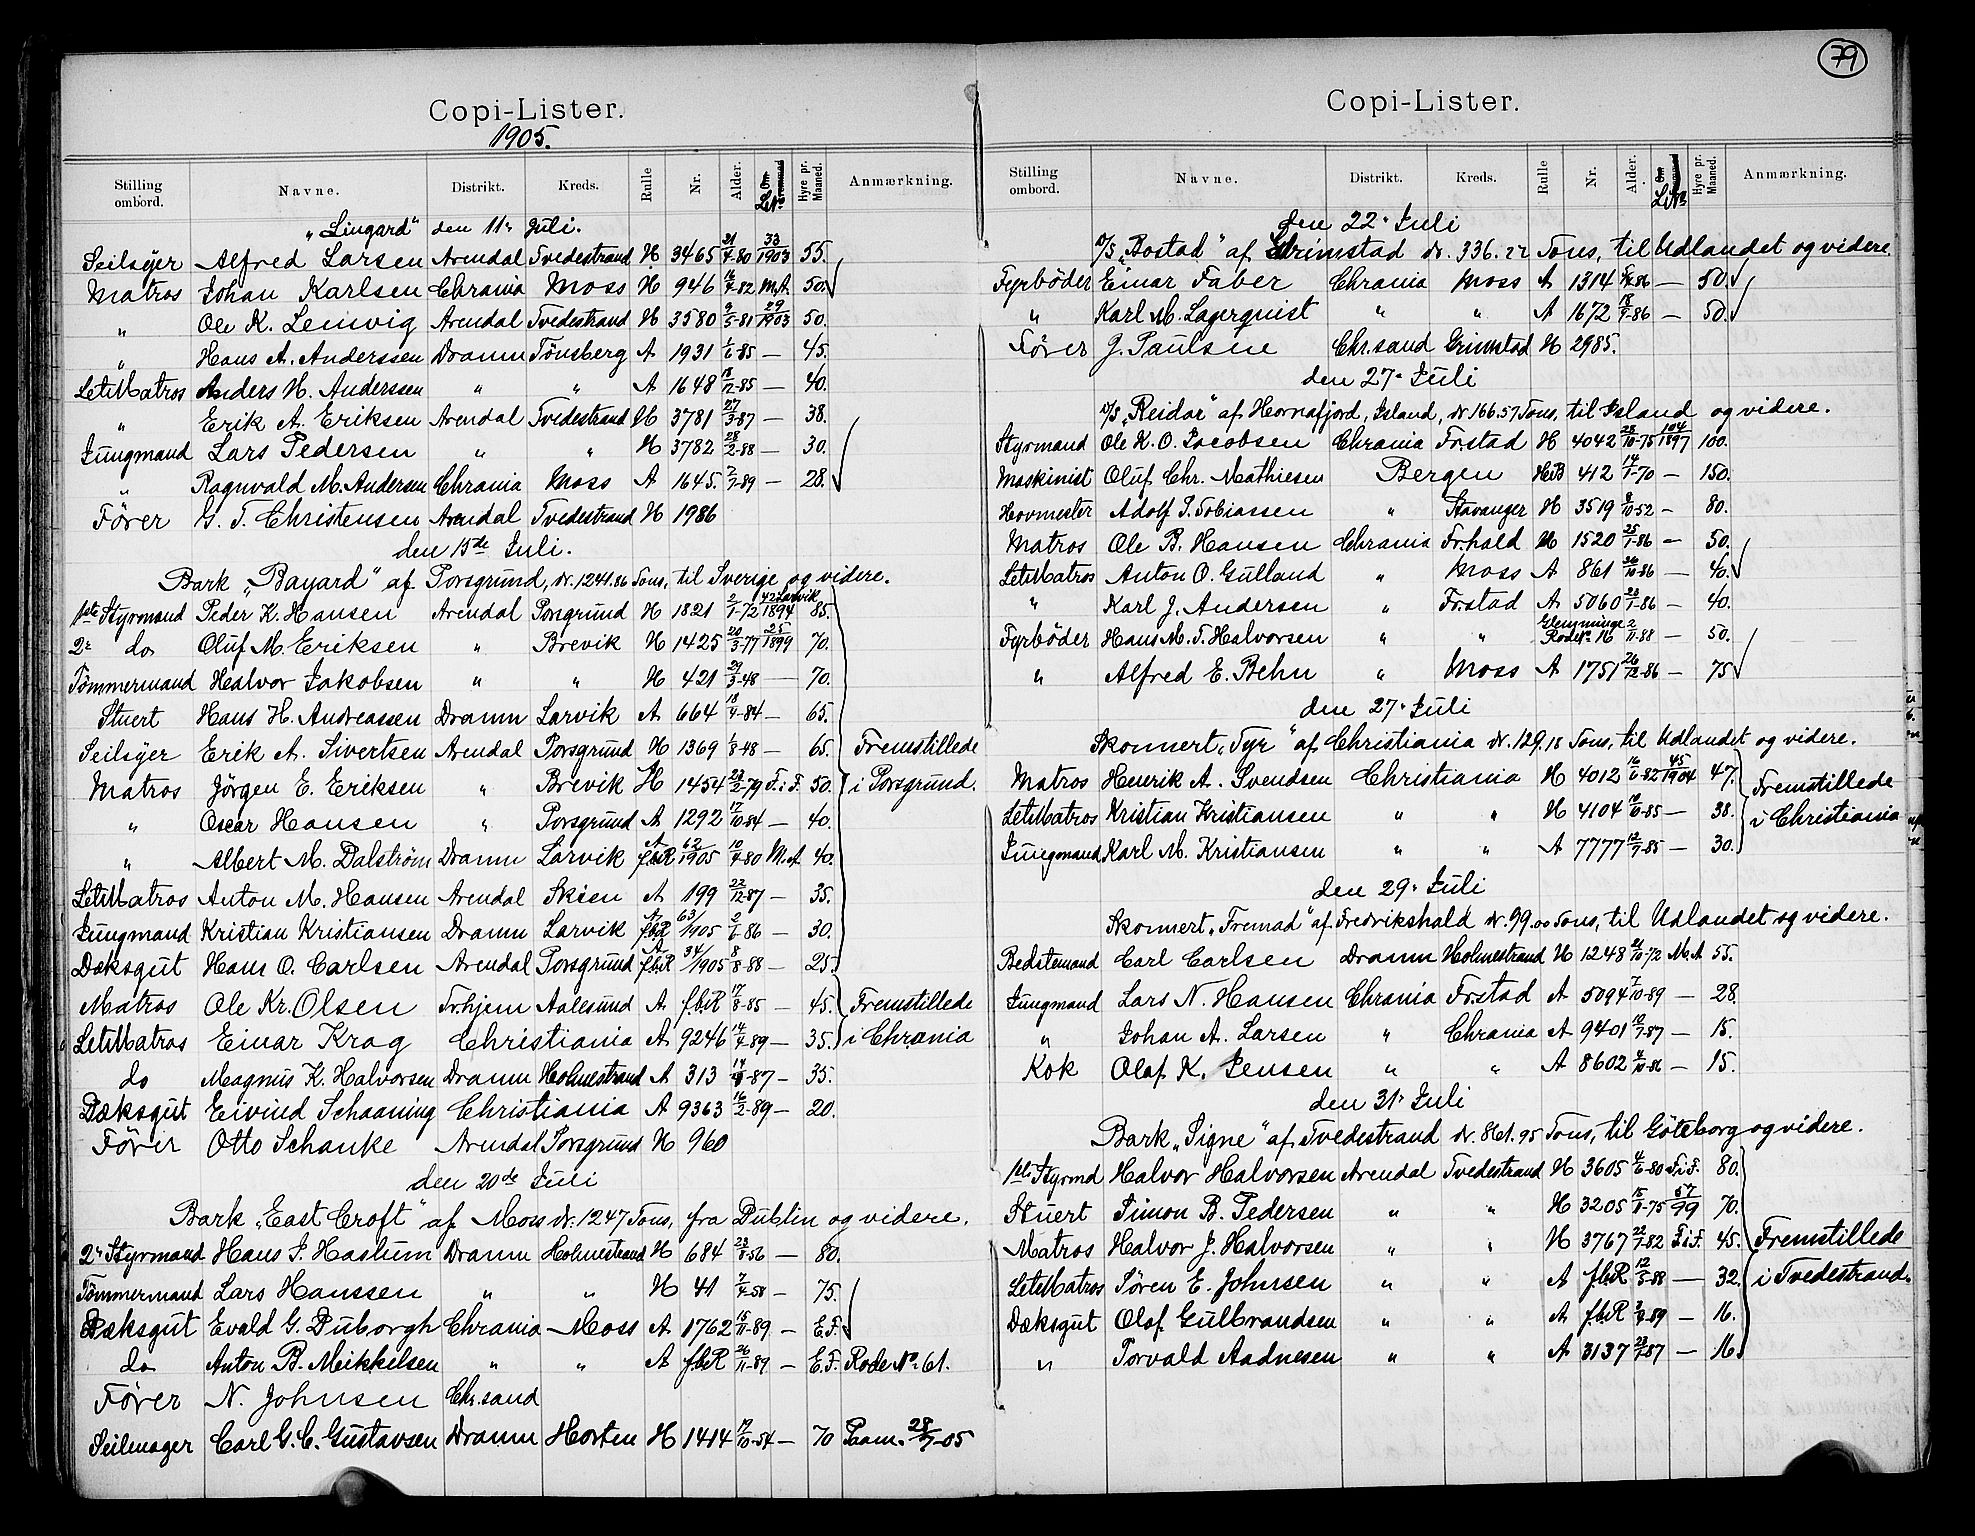 79
Copi-Lister.
1905.
Stilling ombord. Navne. Distrikt. Kreds. Rulle Nr. Alder. Hyre pr. Maaned. Anmærkning.
"Lingard" den 11. Juli.
Seilsyer Alfred Larsen Arendal Tvedestrand H 3465 21/4-80 33/1903 55.
Matros Johan Karlsen Chrania Moss H 946 16/7-82 M.A. 50.
" Ole K. Lemvig Arendal Tvedestrand H 3580 9/5-81 29/1903 50.
" Hans A. Anderssen Dramn Tønsberg A 1931 1/6-85 — 45.
LetMatros Anders H. Anderssen " " A 1648 18/12-85 — 40.
" Erik A. Eriksen Arendal Tvedestrand H 3781 27/3-87 — 38.
Jungmand Lars Pedersen " " H 3782 28/2-88 — 30.
" Ragnvald M. Andersen Chrania Moss A 1645. 2/7-89 — 28.
Fører G. T. Christensen Arendal Tvedestrand H 1986
den 15de Juli.
Bark "Bayard" af Porsgrund, dr. 1241.86 Tons, til Sverige og videre.
1ste Styrmand Peder K. Hansen Arendal Porsgrund H 1821 2/1-72 42 Larvik/1894 85.
2. do Oluf M. Eriksen " Brevik H 1425 20/3-77 25/1899 70.
Tømmermand Halvor Jakobsen " " H 421 29/3-48 — 70.
Stuert Hans H. Andreassen Dramn Larvik A 664 18/4-84 — 65.
Seilsyer Erik A. Sivertsen Arendal Porsgrund H 1369 1/8-48 — 65. Fremstillede
Matros Jörgen E. Eriksen " Brevik H 1454 23/2-79 F.i.F. 50. i Porsgrund.
" Oscar Hansen " Porsgrund A 1292 17/10-84 — 40.
" Albert M. Dalström Dramn Larvik A fbR 62/1905 10/4-80 M.A. 40.
LetMatros Anton M. Hansen Arendal Skien A 199 22/12-87 — 35.
Jungmand Kristian Kristiansen Dramn Larvik A fbR 63/1905 2/6-86 — 30.
Dæksgut Hans O. Carlsen Arendal Porsgrund A fbR 34/1905 8/8-88 — 25.
Matros Ole Kr. Olsen Tr.hjem Aalesund A fbR 17/8-85 — 45. Fremstillede
LetMatros Einar Krag Christiania A 9246 14/4-89 — 35. i Chrania
do Magnus K. Halvorsen Dramn Holmestrand A 313 -87 — 35.
Dæksgut Eivind Schaaning Christiania A 9363 16/2-89 — 20.
Fører Otto Schanke Arendal Porsgrund H 960
den 20de Juli
Bark "East Croft" af Moss dr. 1247 Tons, fra Dublin og videre.
2. Styrmand Hans J. Haslum Dramn Holmestrand H 684 23/8-56 — 80.
Tømmermand Lars Hanssen " " H 41 7/4-58 — 75.
Dæksgut Evald G. Duborgh Chrania Moss A 1762 15/11-89 — E.F.
do Anton B. Mikkelsen " " A fbR 26/11-89 — E.F. Rode No. 61.
Fører N. Johnsen Chr.sand
Seilmager Carl G. C. Gustavsen Dramn Horten H 1414 17/10-54 — 70 Paam. 28/7-05
Copi-Lister.
Stilling ombord. Navne. Distrikt. Kreds. Rulle Nr. Alder. Hyre pr. Maaned. Anmærkning.
den 22. Juli
D/S "Bostad" af Grimstad dr. 336.22 Tons, til Udlandet og videre.
Fyrbøder Einar Faber Chrania Moss A 1314 -86 — 50.
" Karl M. Lagerquist " " A 1672 18/9-86 — 50.
Fører J. Paulsen Chr.sand Grimstad H 2985.
den 27. Juli
D/S "Reidar" af Hornafjord, Island, dr. 166.57 Tons, til Island og videre.
Styrmand Ole K. O. Jacobsen Chrania Fr.stad H 4042 28/10-75 104/1897 100.
Maskinist Oluf Chr. Mathiesen Bergen HB 412 14/1-70 — 150.
Hovmester Adolf J. Tobiassen " Stavanger H 3519 9/10-52 — 80.
Matros Ole B. Hansen Chrania Fr.hald H 1520 25/1-86 — 50.
LetMatros Anton O. Gulland " Moss A 861 30/10-86 — 40.
" Karl J. Andersen " Fr.stad A 5060 23/1-86 — 40.
Fyrbøder Hans M. T. Halvorsen " " Glemminge Rode No. 16 2/11-88 — 50.
" Alfred E. Behn " Moss A 1751 26/12-86 — 75
den 27. Juli
Skonnert "Tyr" af Christiania dr. 129.18 Tons, til Udlandet og videre.
Matros Henrik A. Svendsen Christiania H 4012 16/6-82 45/1904 47. Fremstillede
LetMatros Kristian Kristiansen " " H 4104 10/10-85 — 38. i Christiania
Jungmand Karl M. Kristiansen " " A 7777 12/9-85 — 30.
den 29. Juli
Skonnert "Fremad" af Fredrikshald dr. 99.00 Tons, til Udlandet og videre.
Bedstemand Carl Carlsen Dramn Holmestrand H 1248 -72 M.A 55.
Jungmand Lars N. Hansen Chrania Fr.stad A 5094 7/10-89 — 28.
" Johan A. Larsen " Chrania A 9401 10/7-87 — 15.
Kok Olaf K. Jensen " " A 8602 9/10-86 — 15.
den 31. Juli
Bark "Signe" af Tvedestrand dr. 861.95 Tons, til Göteborg og videre.
1ste Styrmd Halvor Halvorsen Arendal Tvedestrand H 3605 4/6-80 F.i.F. 80.
Stuert Simon B. Pedersen " " H 3205 15/8-75 57/99 70.
Matros Halvor J. Halvorsen " " H 3767 22/1-82 F.i.F. 45. Fremstillede
LetMatros Søren E. Johnsen " " A fbR 12/5-88 — 32. i Tvedestrand.
Dæksgut Olaf Gulbrandsen " " A fbR -89 — 16.
" Torvald Aadnesen " " A 3137 -87 — 16